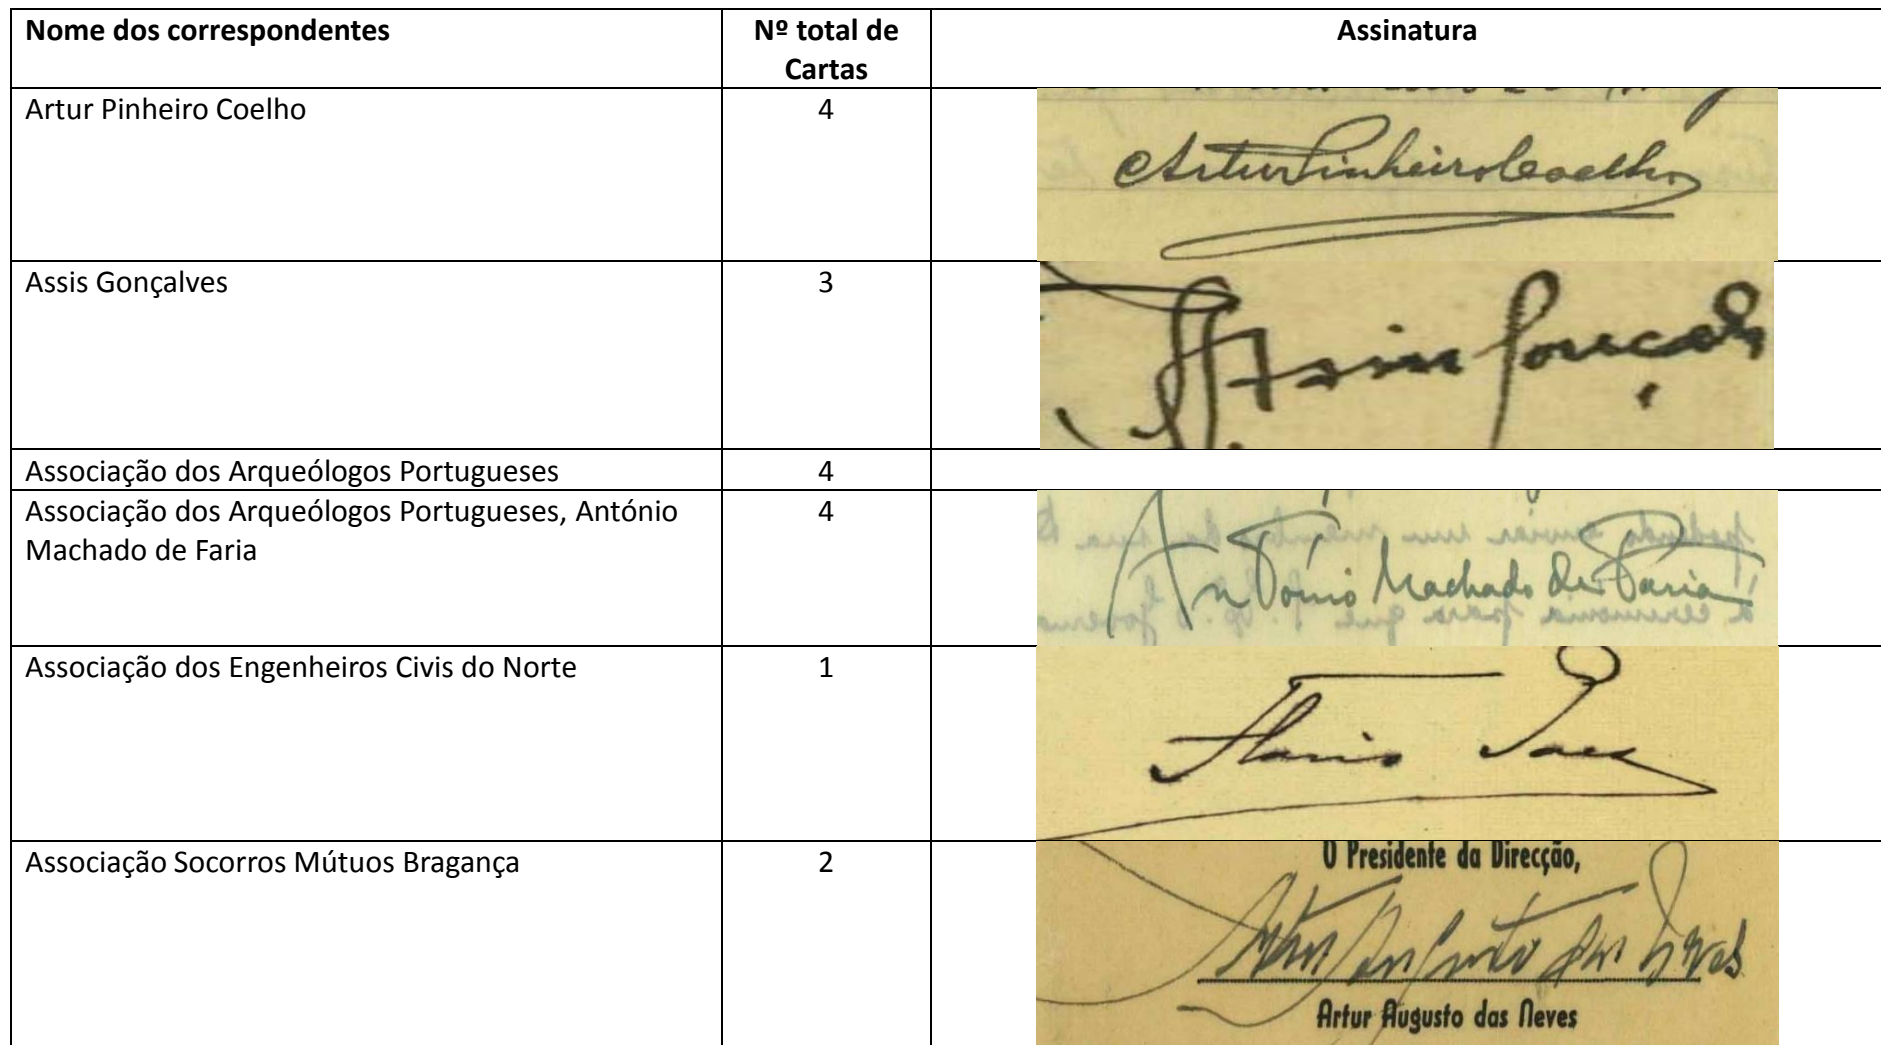 Nome dos correspondentes
Nº total de
Cartas
Assinatura
Artur Pinheiro Coelho
4
Artur Pinheiro Coelho
Assis Gonçalves
3
Assis Gonçalves
Associação dos Arqueólogos Portugueses
4
Associação dos Arqueólogos Portugueses, António
Machado de Faria
4
António Machado de Faria
Associação dos Engenheiros Civis do Norte
1
Flavio Paes
Associação Socorros Mútuos Bragança
2
O Presidente da Direcção,
Artur Augusto das Neves
Artur Augusto das Neves